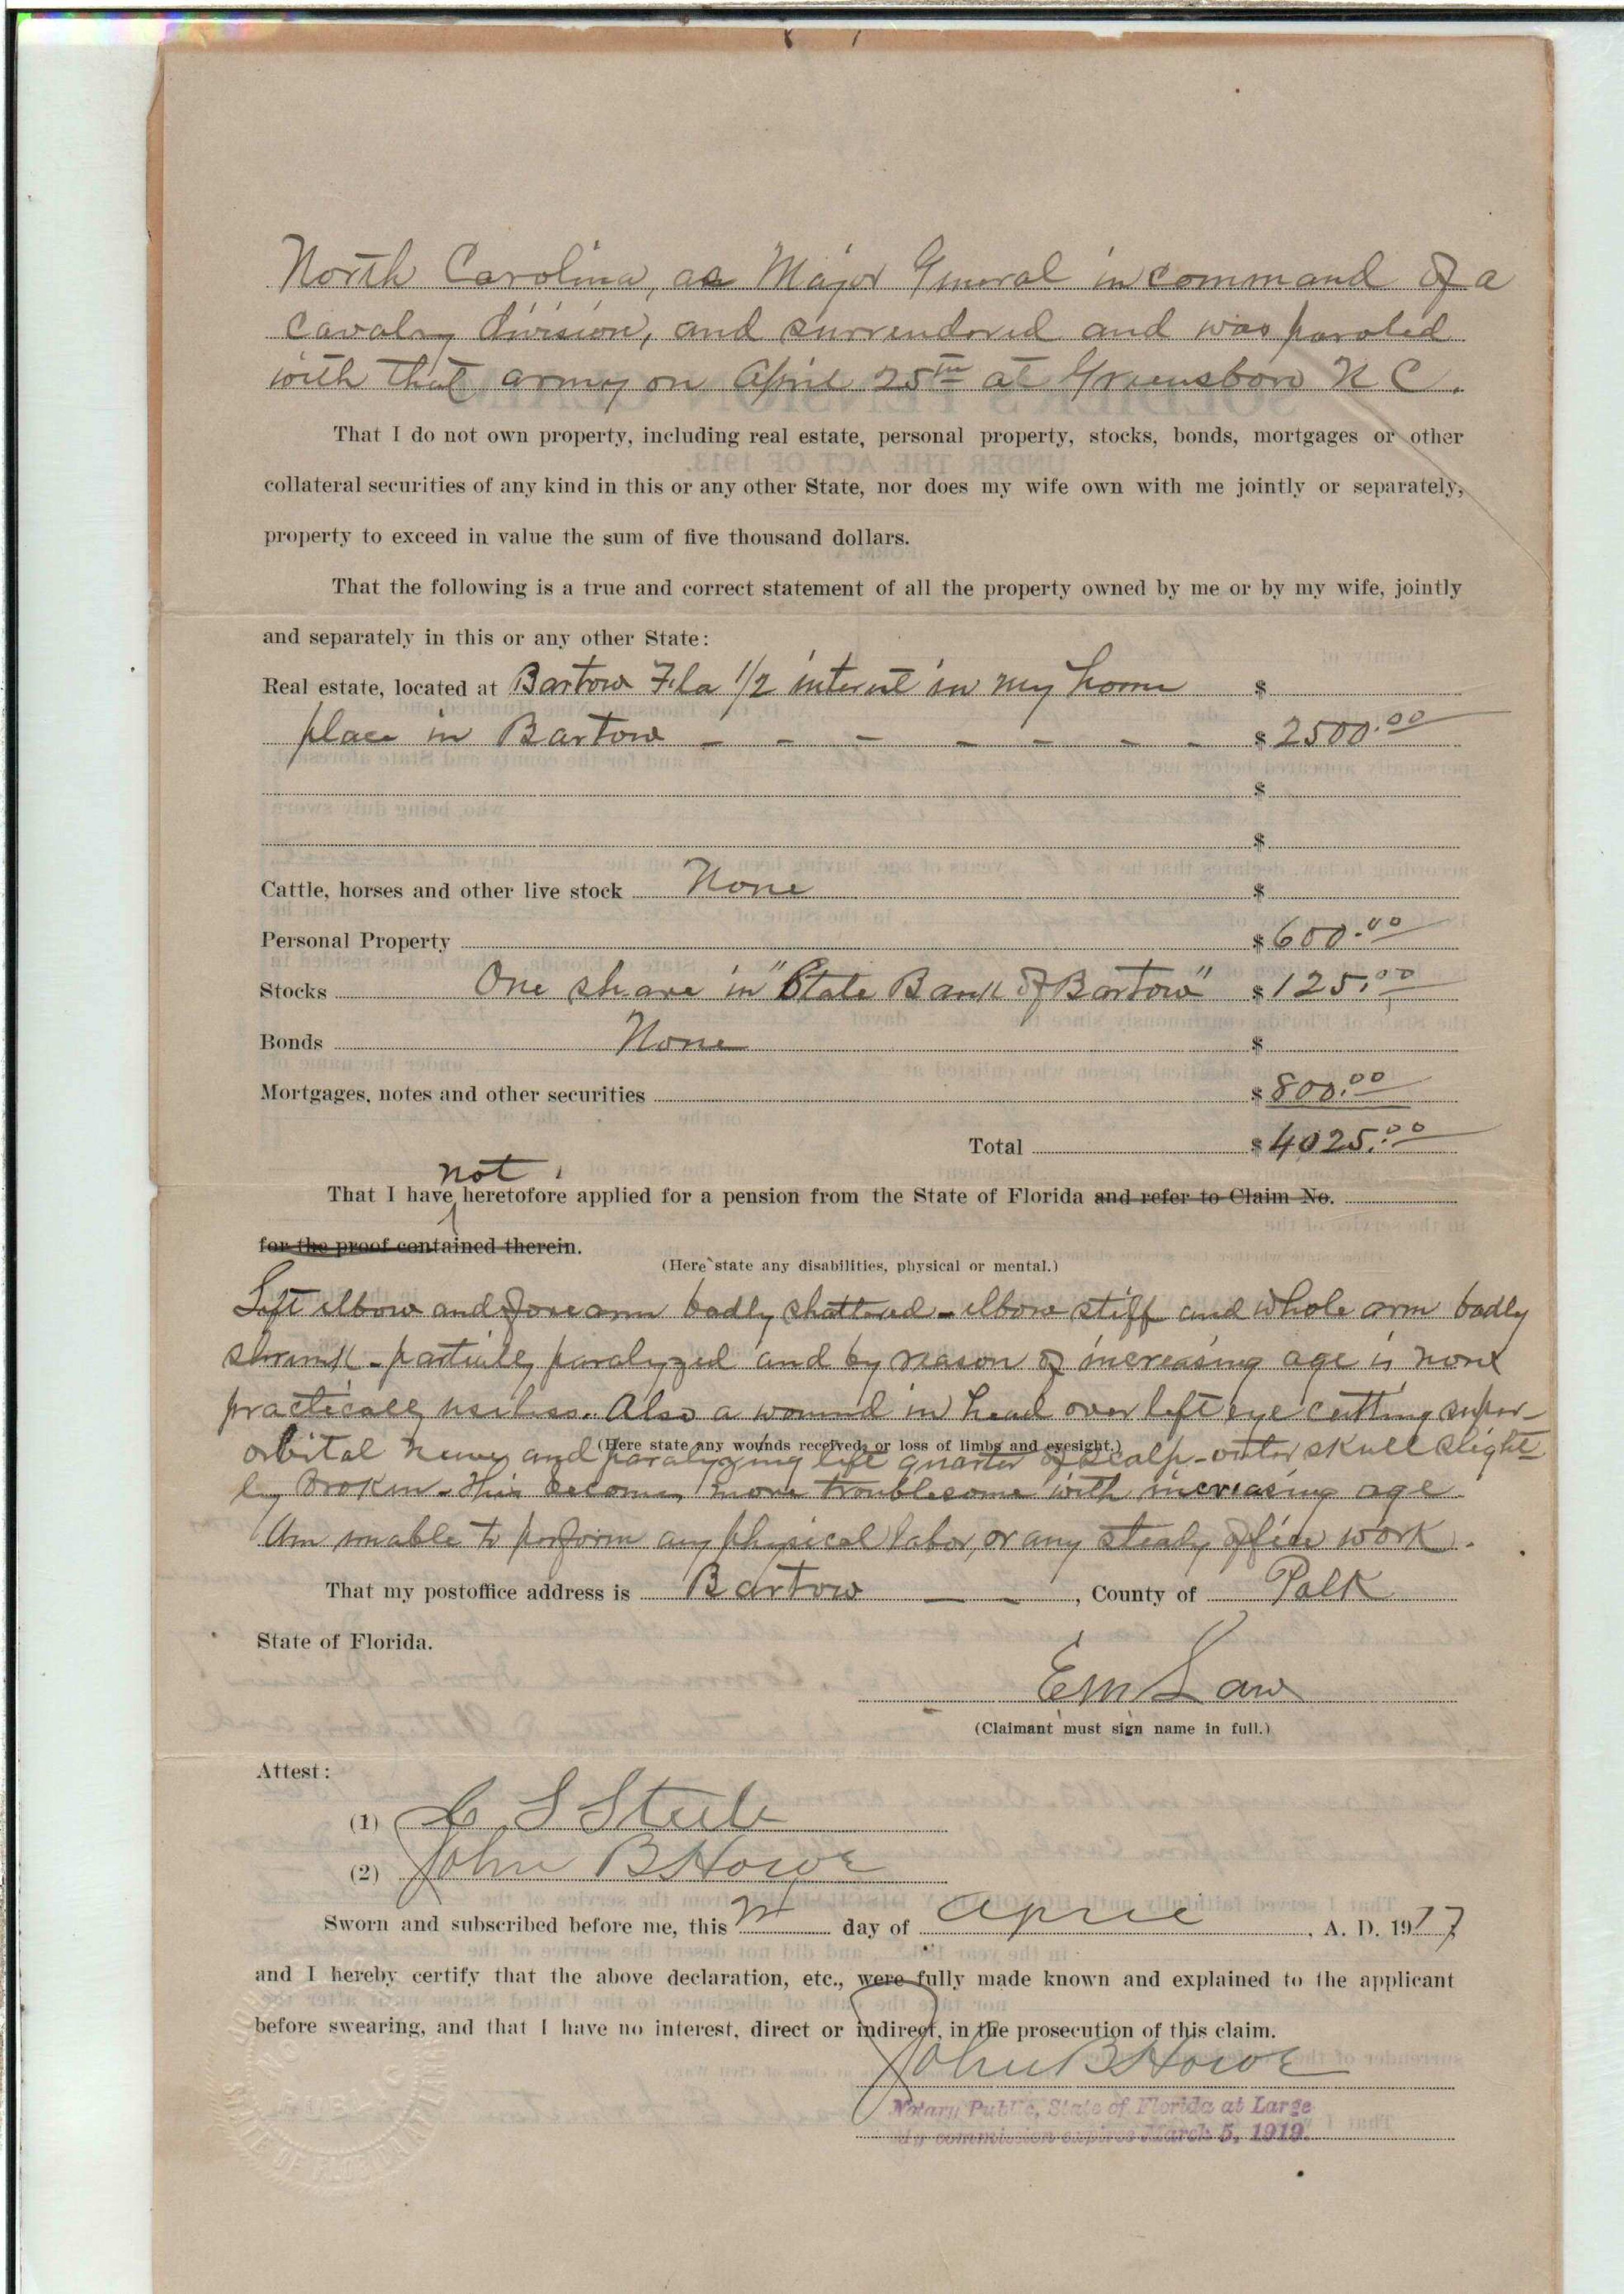 North Carolina, as Major General in command of a
cavalry division, and surrendered and was paroled
with that army on April 25th at Greensboro N C.
That I do not own property, including real estate, personal property, stocks, bonds, mortgages or other
collateral securities of any kind in this or any other State, nor does my wife own with me jointly or separately,
property to exceed in value the sum of five thousand dollars.
That the following is a true and correct statement of all the property owned by me or by my wife, jointly
and separately in this or any other State:
Real estate, located at Bartow Fla 1/2 interest in my home $
place in Bartow - - - - - - - $ 2500.00
$
$
Cattle, horses and other live stock None $
Personal Property $ 600.00
Stocks One share in "State Bank of Bartow" $ 125.00
Bonds None $
Mortgages, notes and other securities $ 800.00
Total $ 4025.00
not
That I have heretofore applied for a pension from the State of Florida and refer to Claim No.
for the proof contained therein.
(Here state any disabilities, physical or mental.)
Left elbow and fore arm badly shattered - elbow stiff and whole arm badly
shrunk - partially paralyzed and by reason of increasing age is now
practically useless. Also a wound in head over left eye cutting super-
orbital nerve and paralyzing left quarter of scalp - outer skull slight-
(Here state any wounds received, or loss of limbs and eyesight.)
ly broken - this becomes more troublesome with increasing age
Am unable to perform any physical labor, or any steady office work.
That my postoffice address is Bartow , County of Polk
State of Florida.
E M Law
(Claimant must sign name in full.)
Attest:
(1) S Steele
(2) John B Howe
Sworn and subscribed before me, this day of April , A. D. 1917
and I hereby certify that the above declaration, etc., were fully made known and explained to the applicant
before swearing, and that I have no interest, direct or indirect, in the prosecution of this claim.
John B Howe
Notary Public, State of Florida at Large
My commission expires March 5, 1919.